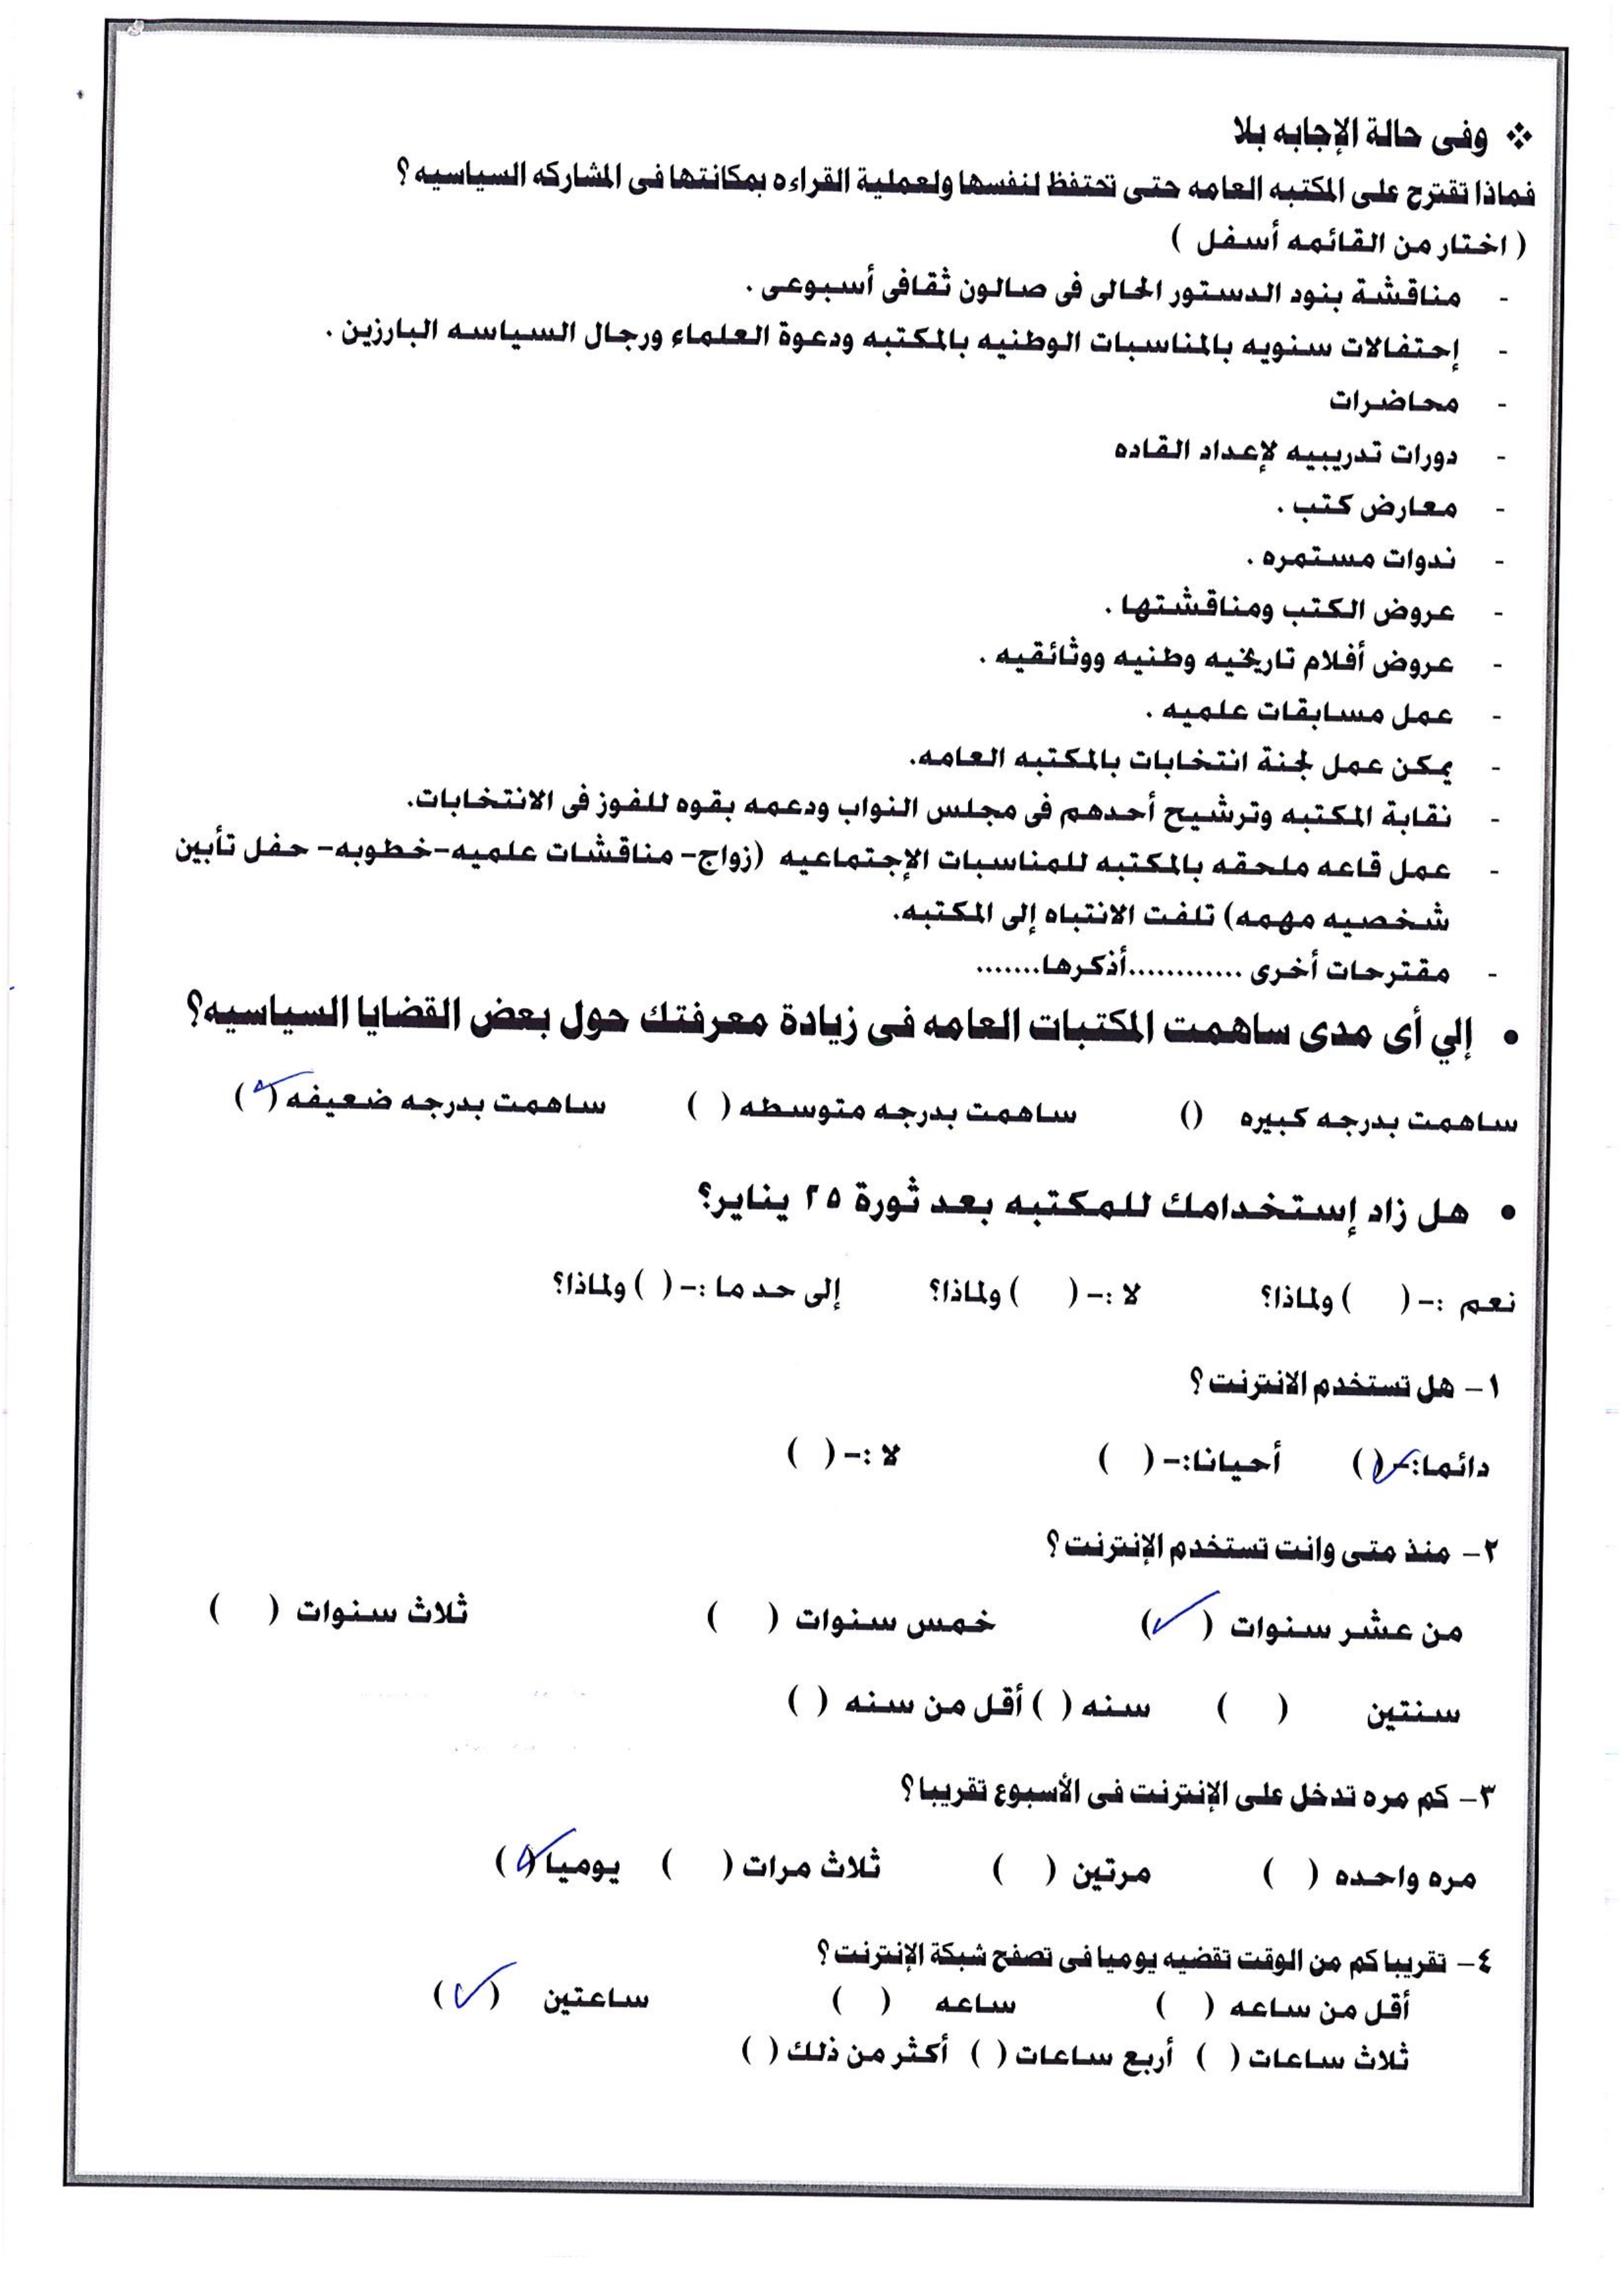 ❖ وفى حالة الإجابه بلا
فماذا تقترح على المكتبه العامه حتى تحتفظ لنفسها ولعملية القراءه بمكانتها فى المشاركه السياسيه؟
( اختار من القائمه أسفل )
- مناقشة بنود الدستور الحالى فى صالون ثقافى أسبوعى .
- إحتفالات سنويه بالمناسبات الوطنيه بالمكتبه ودعوة العلماء ورجال السياسه البارزين .
- محاضرات
- دورات تدريبيه لإعداد القاده
- معارض كتب .
- ندوات مستمره .
- عروض الكتب ومناقشتها .
- عروض أفلام تاريخيه وطنيه ووثائقيه .
- عمل مسابقات علميه .
- يمكن عمل لجنة انتخابات بالمكتبه العامه.
- نقابة المكتبه وترشيح أحدهم فى مجلس النواب ودعمه بقوه للفوز فى الانتخابات.
- عمل قاعه ملحقه بالمكتبه للمناسبات الإجتماعيه (زواج- مناقشات علميه-خطوبه- حفل تأبين
شخصيه مهمه) تلفت الانتباه إلى المكتبه.
- مقترحات أخرى ............أذكرها.......
• إلي أى مدى ساهمت المكتبات العامه فى زيادة معرفتك حول بعض القضايا السياسيه؟
ساهمت بدرجه كبيره () ساهمت بدرجه متوسطه ( ) ساهمت بدرجه ضعيفه (✓)
• هل زاد إستخدامك للمكتبه بعد ثورة ٢٥ يناير؟
نعم :- ( ) ولماذا؟ لا :- ( ) ولماذا؟ إلى حد ما :- ( ) ولماذا؟
١- هل تستخدم الانترنت ؟
دائما:- (✓) أحيانا:- ( ) لا :- ( )
٢- منذ متى وانت تستخدم الإنترنت ؟
من عشر سنوات (✓) خمس سنوات ( ) ثلاث سنوات ( )
سنتين ( ) سنه ( ) أقل من سنه ( )
٣- كم مره تدخل على الإنترنت فى الأسبوع تقريبا؟
مره واحده ( ) مرتين ( ) ثلاث مرات ( ) يوميا (✓)
٤- تقريبا كم من الوقت تقضيه يوميا فى تصفح شبكة الإنترنت ؟
أقل من ساعه ( ) ساعه ( ) ساعتين (✓)
ثلاث ساعات ( ) أربع ساعات ( ) أكثر من ذلك ( )